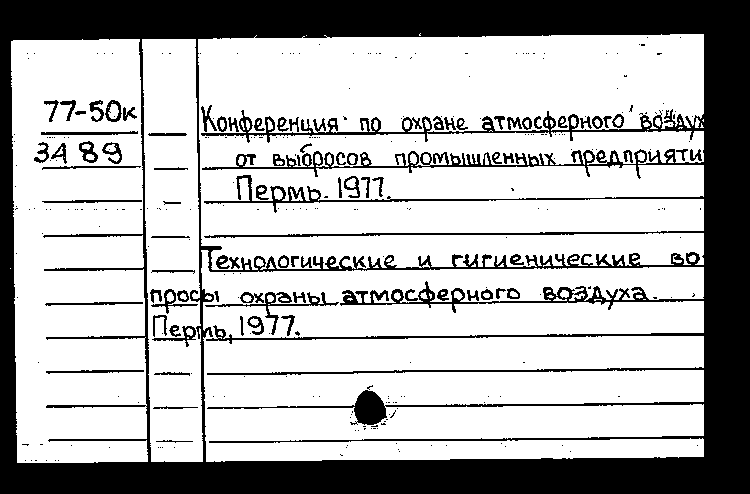 77-50к
Конференция по охране атмосферного воздух
3489
от выбросов промышленных предприяти
Пермь. 1977.
Технологические и гигиенические во-
просы охраны атмосферного воздуха.
Пермь, 1977.